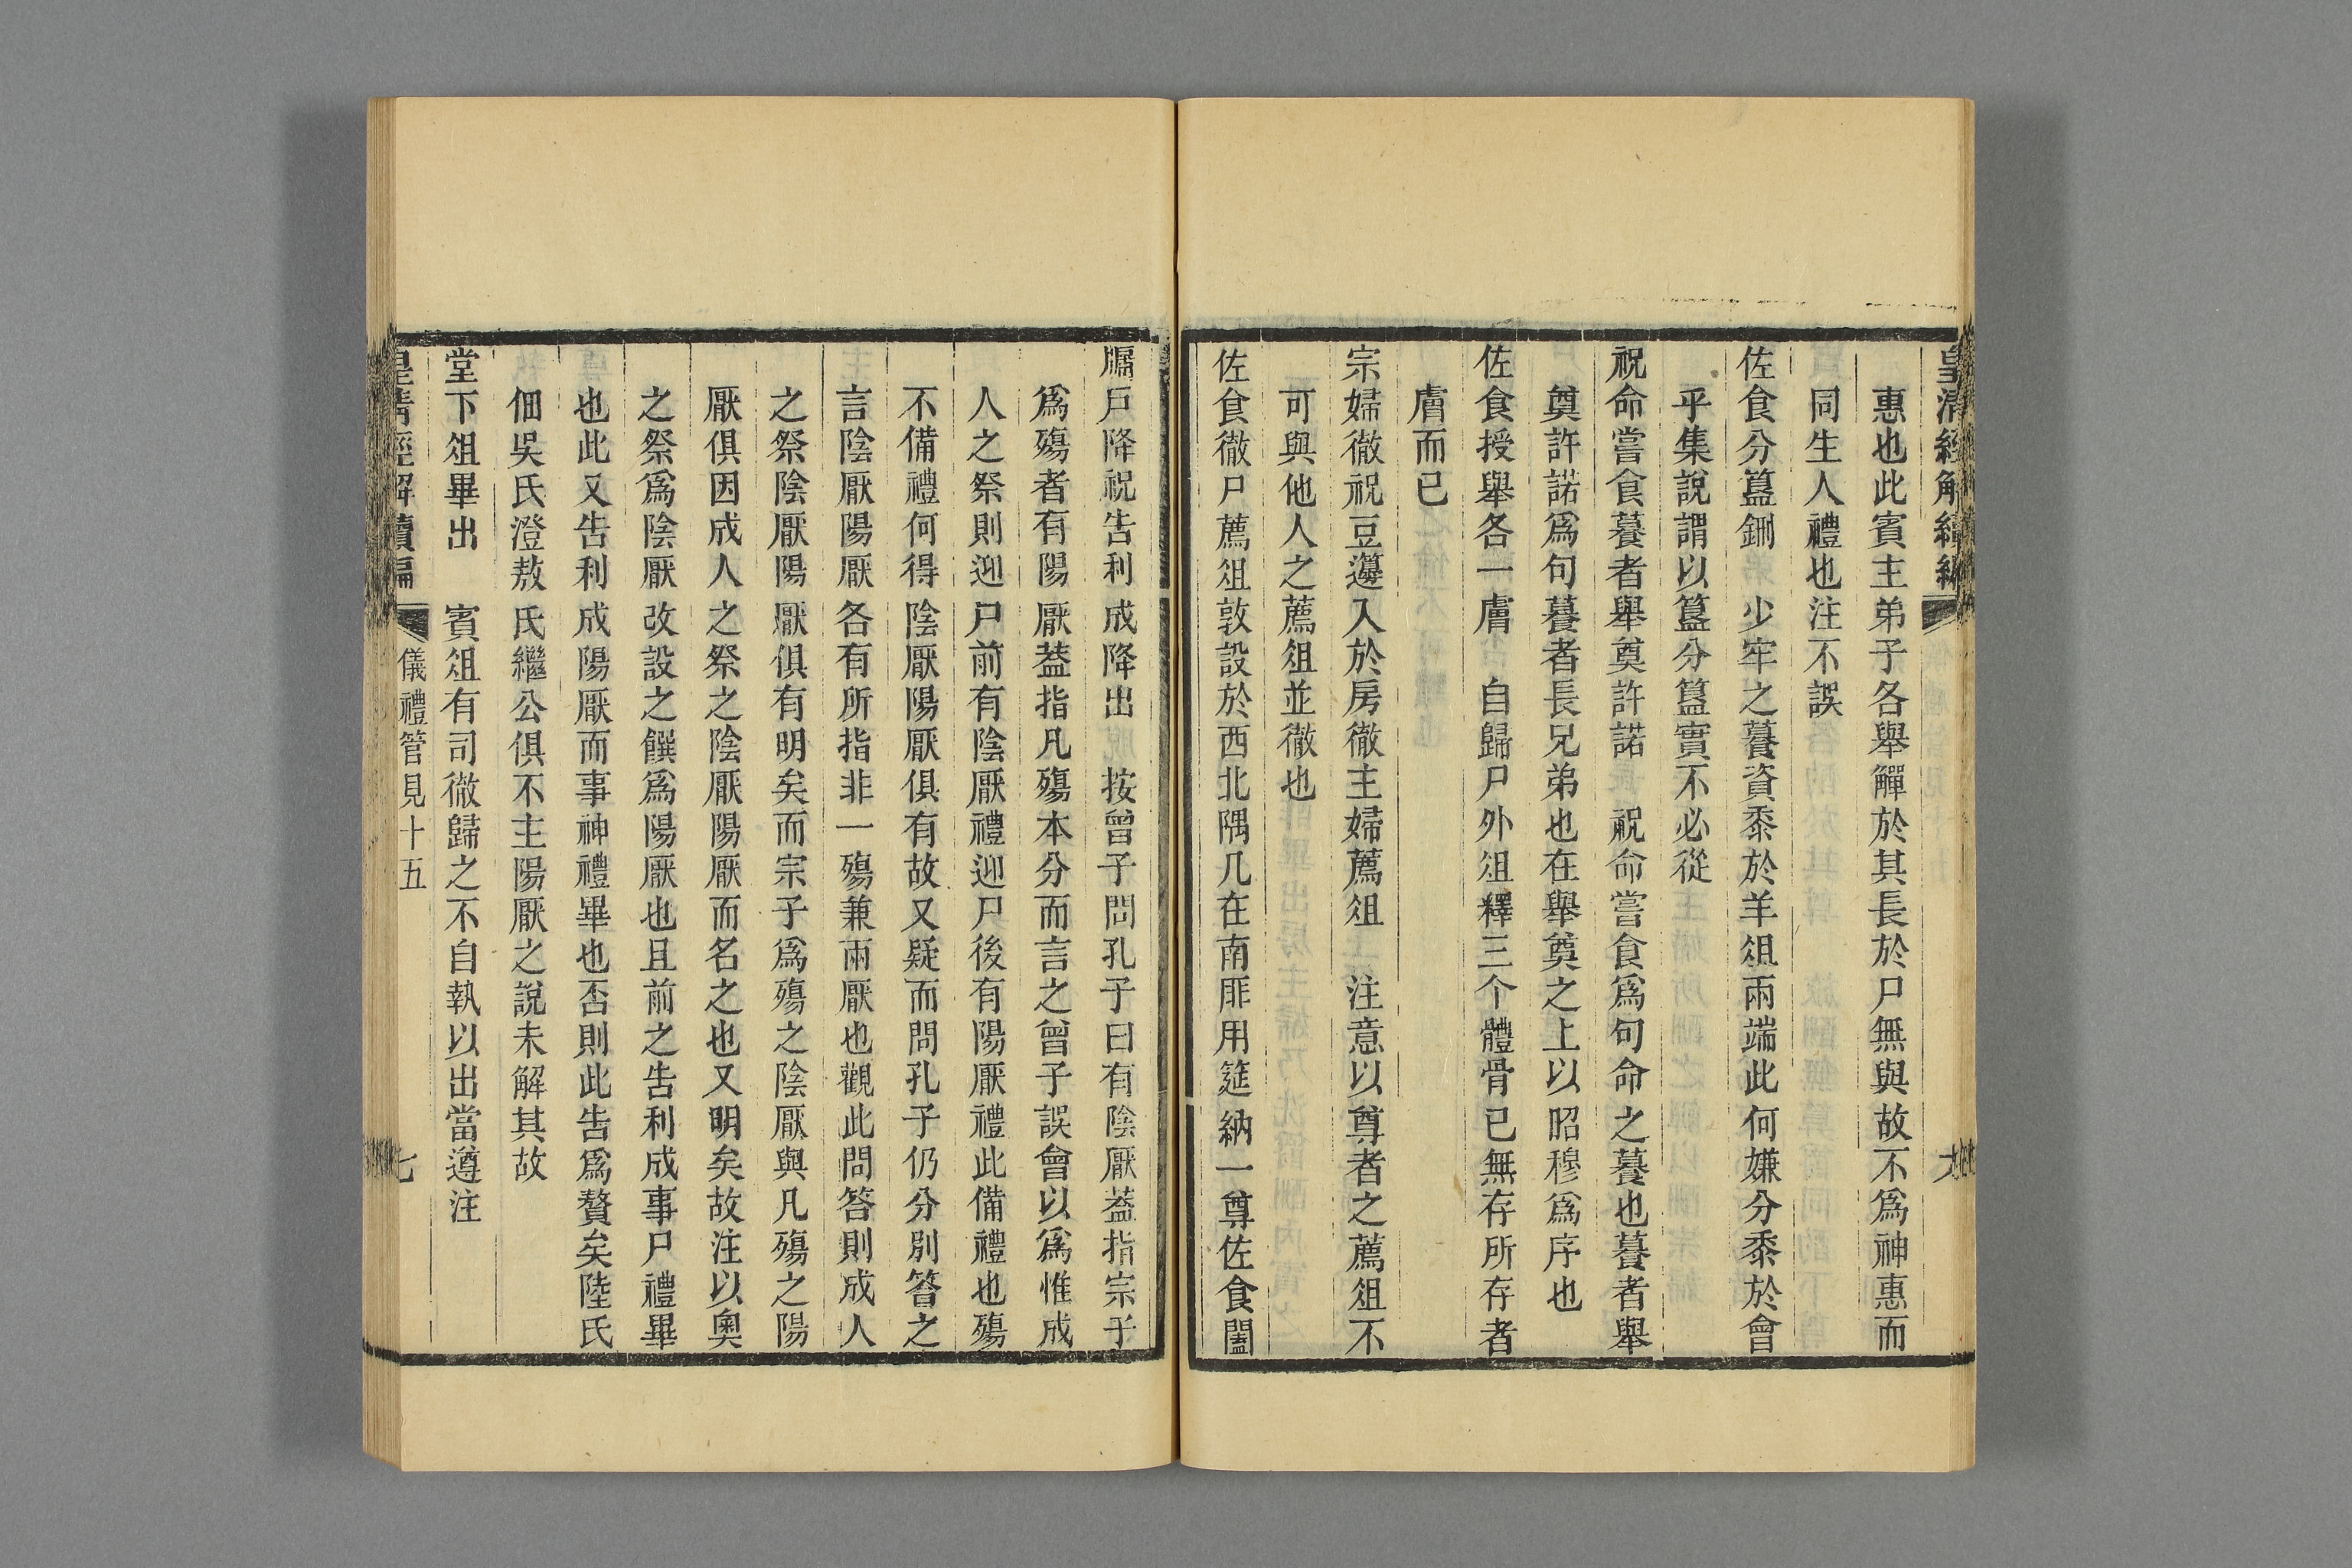 皇清經解續編
惠也此賓主弟子各舉觶於其長於尸無與故不爲神惠而
同生人禮也注不誤
佐食分簋鉶　少牢之餕資黍於羊俎兩端此何嫌分黍於會
乎集說謂以簋分簋實不必從
祝命嘗食餕者舉奠許諾　祝命嘗食爲句命之餕也餕者舉
奠許諾爲句餕者長兄弟也在舉奠之上以昭穆爲序也
佐食授舉各一膚　自歸尸外俎釋三个體骨已無存所存者
膚而已
宗婦徹祝豆籩入於房徹主婦薦俎　注意以尊者之薦俎不
可與他人之薦俎並徹也
佐食徹尸薦俎敦設於西北隅几在南厞用筵納一尊佐食闔
牖戶降祝告利成降出　按曾子問孔子曰有陰厭葢指宗子
爲殤者有陽厭葢指凡殤本分而言之曾子誤會以爲惟成
人之祭則迎尸前有陰厭禮迎尸後有陽厭禮此備禮也殤
不備禮何得陰厭陽厭俱有故又疑而問孔子仍分別答之
言陰厭陽厭各有所指非一殤兼兩厭也觀此問答則成人
之祭陰厭陽厭俱有明矣而宗子爲殤之陰厭與凡殤之陽
厭俱因成人之祭之陰厭陽厭而名之也又明矣故注以奧
之祭爲陰厭改設之饌爲陽厭也且前之告利成事尸禮畢
也此又告利成陽厭而事神禮畢也否則此告爲贅矣陸氏
佃吳氏澄敖氏繼公俱不主陽厭之說未解其故
堂下俎畢出　賓俎有司徹歸之不自執以出當遵注
皇清經解續編　儀禮管見十五　七